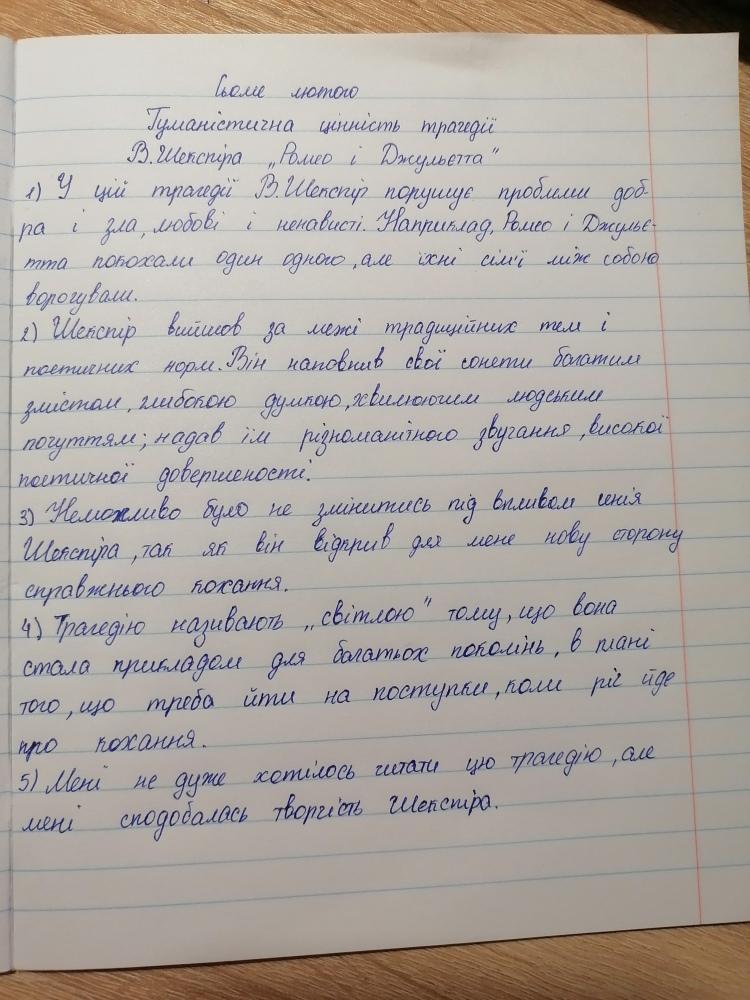 Сьоме лютого
Гуманістична цінність трагедії
В.Шекспіра „Ромео і Джульєтта"
1) У цій трагедії В.Шекспір порушує проблеми доб-
ра і зла, любові і ненависті. Наприклад, Ромео і Джульє-
тта покохали один одного, але їхні сім'ї між собою
ворогували.
2) Шекспір вийшов за межі традиційних тем і
поетичних норм. Він наповнив свої сонети багатим
змістом, глибокою думкою, хвилюючим людським
почуттям; надав їм різноманітного звучання, високої
поетичної довершеності.
3) Неможливо було не змінитись під впливом генія
Шекспіра, так як він відкрив для мене нову сторону
справжнього кохання.
4) Трагедію називають „світлою" тому, що вона
стала прикладом для багатьох поколінь, в плані
того, що треба йти на поступки, коли річ йде
про кохання.
5) Мені не дуже хотілось читати цю трагедію, але
мені сподобалась творчість Шекспіра.